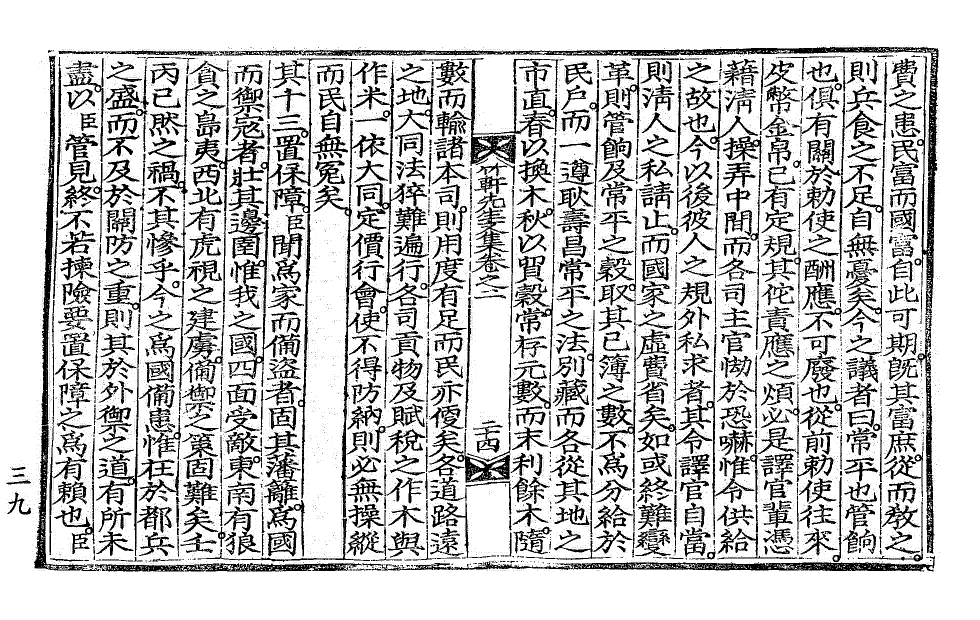 費之患民富而國富自此可期旣其富庶從而敎之
則兵食之不足自無憂矣今之議者曰常平也管餉
也俱有關於勅使之酬應不可廢也從前勅使往來
皮幣金帛已有定規其佗責應之煩必是譯官輩憑
藉淸人操弄中間而各司主官怮於恐嚇惟令供給
之故也今以後彼人之規外私求者其令譯官自當
則淸人之私請止而國家之虛費省矣如或終難變
革則管餉及常平之穀取其已簿之數不爲分給於
民戶而一遵耿壽昌常平之法別藏而各從其地之
市直春以換木秋以貿穀常存元數而末利餘木隨
竹軒先生集卷之二
三十四
數而輸諸本司則用度有足而民亦便矣各道路遠
之地大同法猝難遍行各司貢物及賦稅之作木與
作米一依大同定價行會使不得防納則必無操縱
而民自無寃矣
其十三置保障臣聞爲家而備盜者固其藩籬爲國
而禦寇者壯其邊圉惟我之國四面受敵東南有狼
貪之島夷西北有虎視之建虜備禦之策固難矣壬
丙已然之禍不其慘乎今之爲國備患惟在於都兵
之盛而不及於關防之重則其於外禦之道有所未
盡以臣管見終不若揀險要置保障之爲有賴也臣
三九